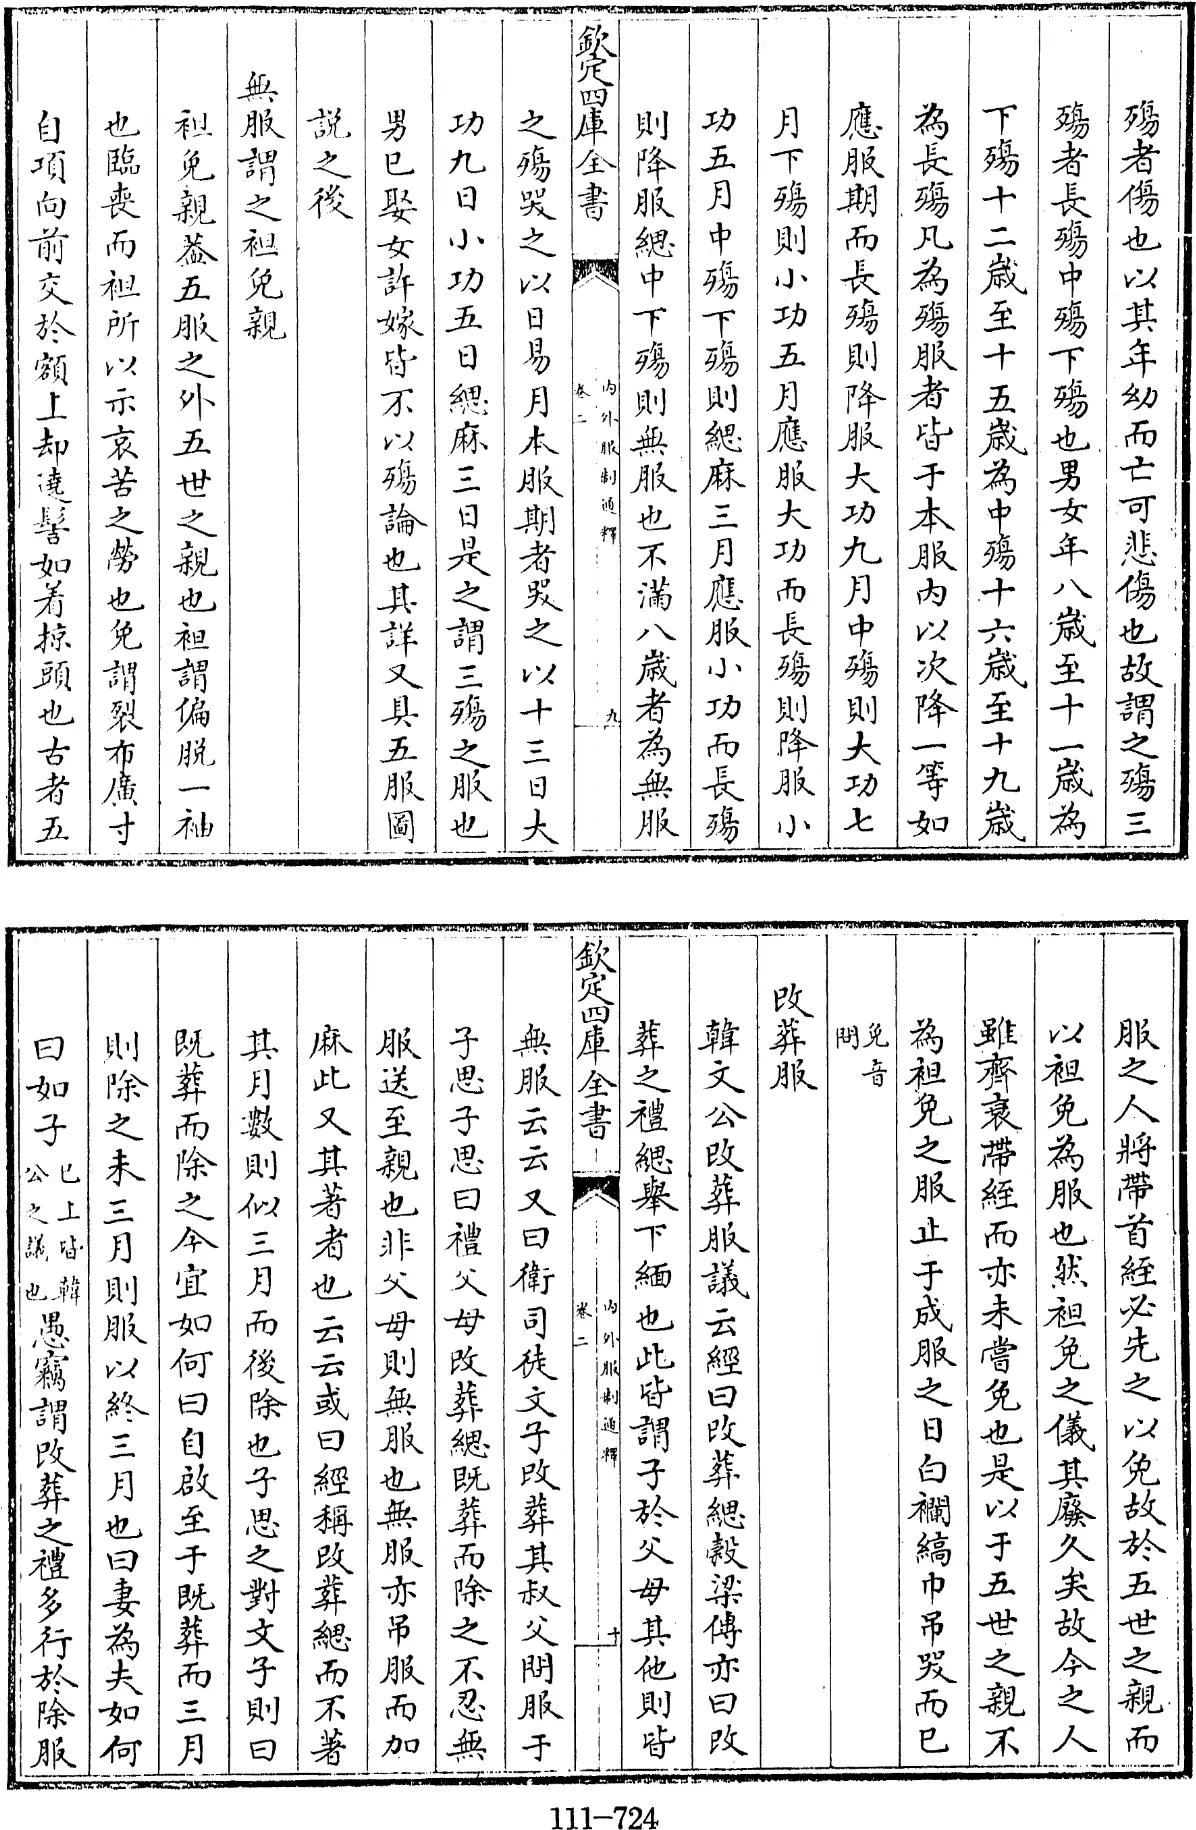 殤者傷也以其年幼而亡可悲傷也故謂之殤三
殤者長殤中殤下殤也男女年八歲至十一歲為
下殤十二歲至十五歲為中殤十六歲至十九歲
為長殤凡為殤服者皆于本服内以次降一等如
應服期而長殤則降服大功九月中殤則大功七
月下殤則小功五月應服大功而長殤則降服小
功五月中殤下殤則緦麻三月應服小功而長殤
則降服緦中下殤則無服也不滿八歲者為無服
欽定四庫全書
内外服制通釋
卷二
九
之殤哭之以日易月本服期者哭之以十三日大
功九日小功五日緦麻三日是之謂三殤之服也
男已娶女許嫁皆不以殤論也其詳又具五服圖
説之後
無服謂之袒免親
袒免親葢五服之外五世之親也袒謂偏脱一袖
也臨喪而袒所以示哀苦之勞也免謂裂布廣寸
自項向前交於額上却遶髻如着掠頭也古者五
服之人將帶首絰必先之以免故於五世之親而
以袒免為服也然袒免之儀其廢久矣故今之人
雖齊衰帶絰而亦未嘗免也是以于五世之親不
為袒免之服止于成服之日白襴縞巾吊哭而已
免音
問
改葬服
韓文公改葬服議云經曰改葬緦穀梁傳亦曰改
葬之禮緦舉下緬也此皆謂子於父母其他則皆
欽定四庫全書
内外服制通釋
卷二
十
無服云云又曰衛司徒文子改葬其叔父問服于
子思子思曰禮父母改葬緦既葬而除之不忍無
服送至親也非父母則無服也無服亦吊服而加
麻此又其著者也云云或曰經稱改葬緦而不著
其月數則似三月而後除也子思之對文子則曰
既葬而除之今宜如何曰自啟至于既葬而三月
則除之未三月則服以終三月也曰妻為夫如何
曰如子已上皆韓公之議也愚竊謂改葬之禮多行於除服
111-724